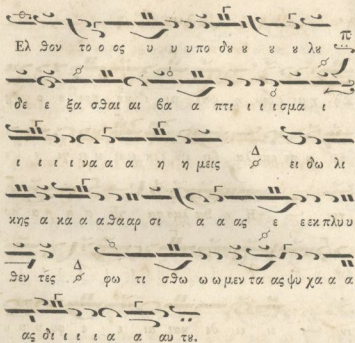 Ελ θον το ο ος υ υ υ πο δȣ ȣ ȣ ȣ λȣ
δε ε ξα σθαι αι βα α πτι ι ι ισμα ι
ι ι ι ι να α α η η μεις Δ ει δω λι
κης α κα α α θα αρ σι α α ας ε ε εκ πλυυ
θεν τες Δ φω τι σθω ω ω μεν τα ας ψυ χα α α
ας δι ι ι ι α α αυ τȣ.